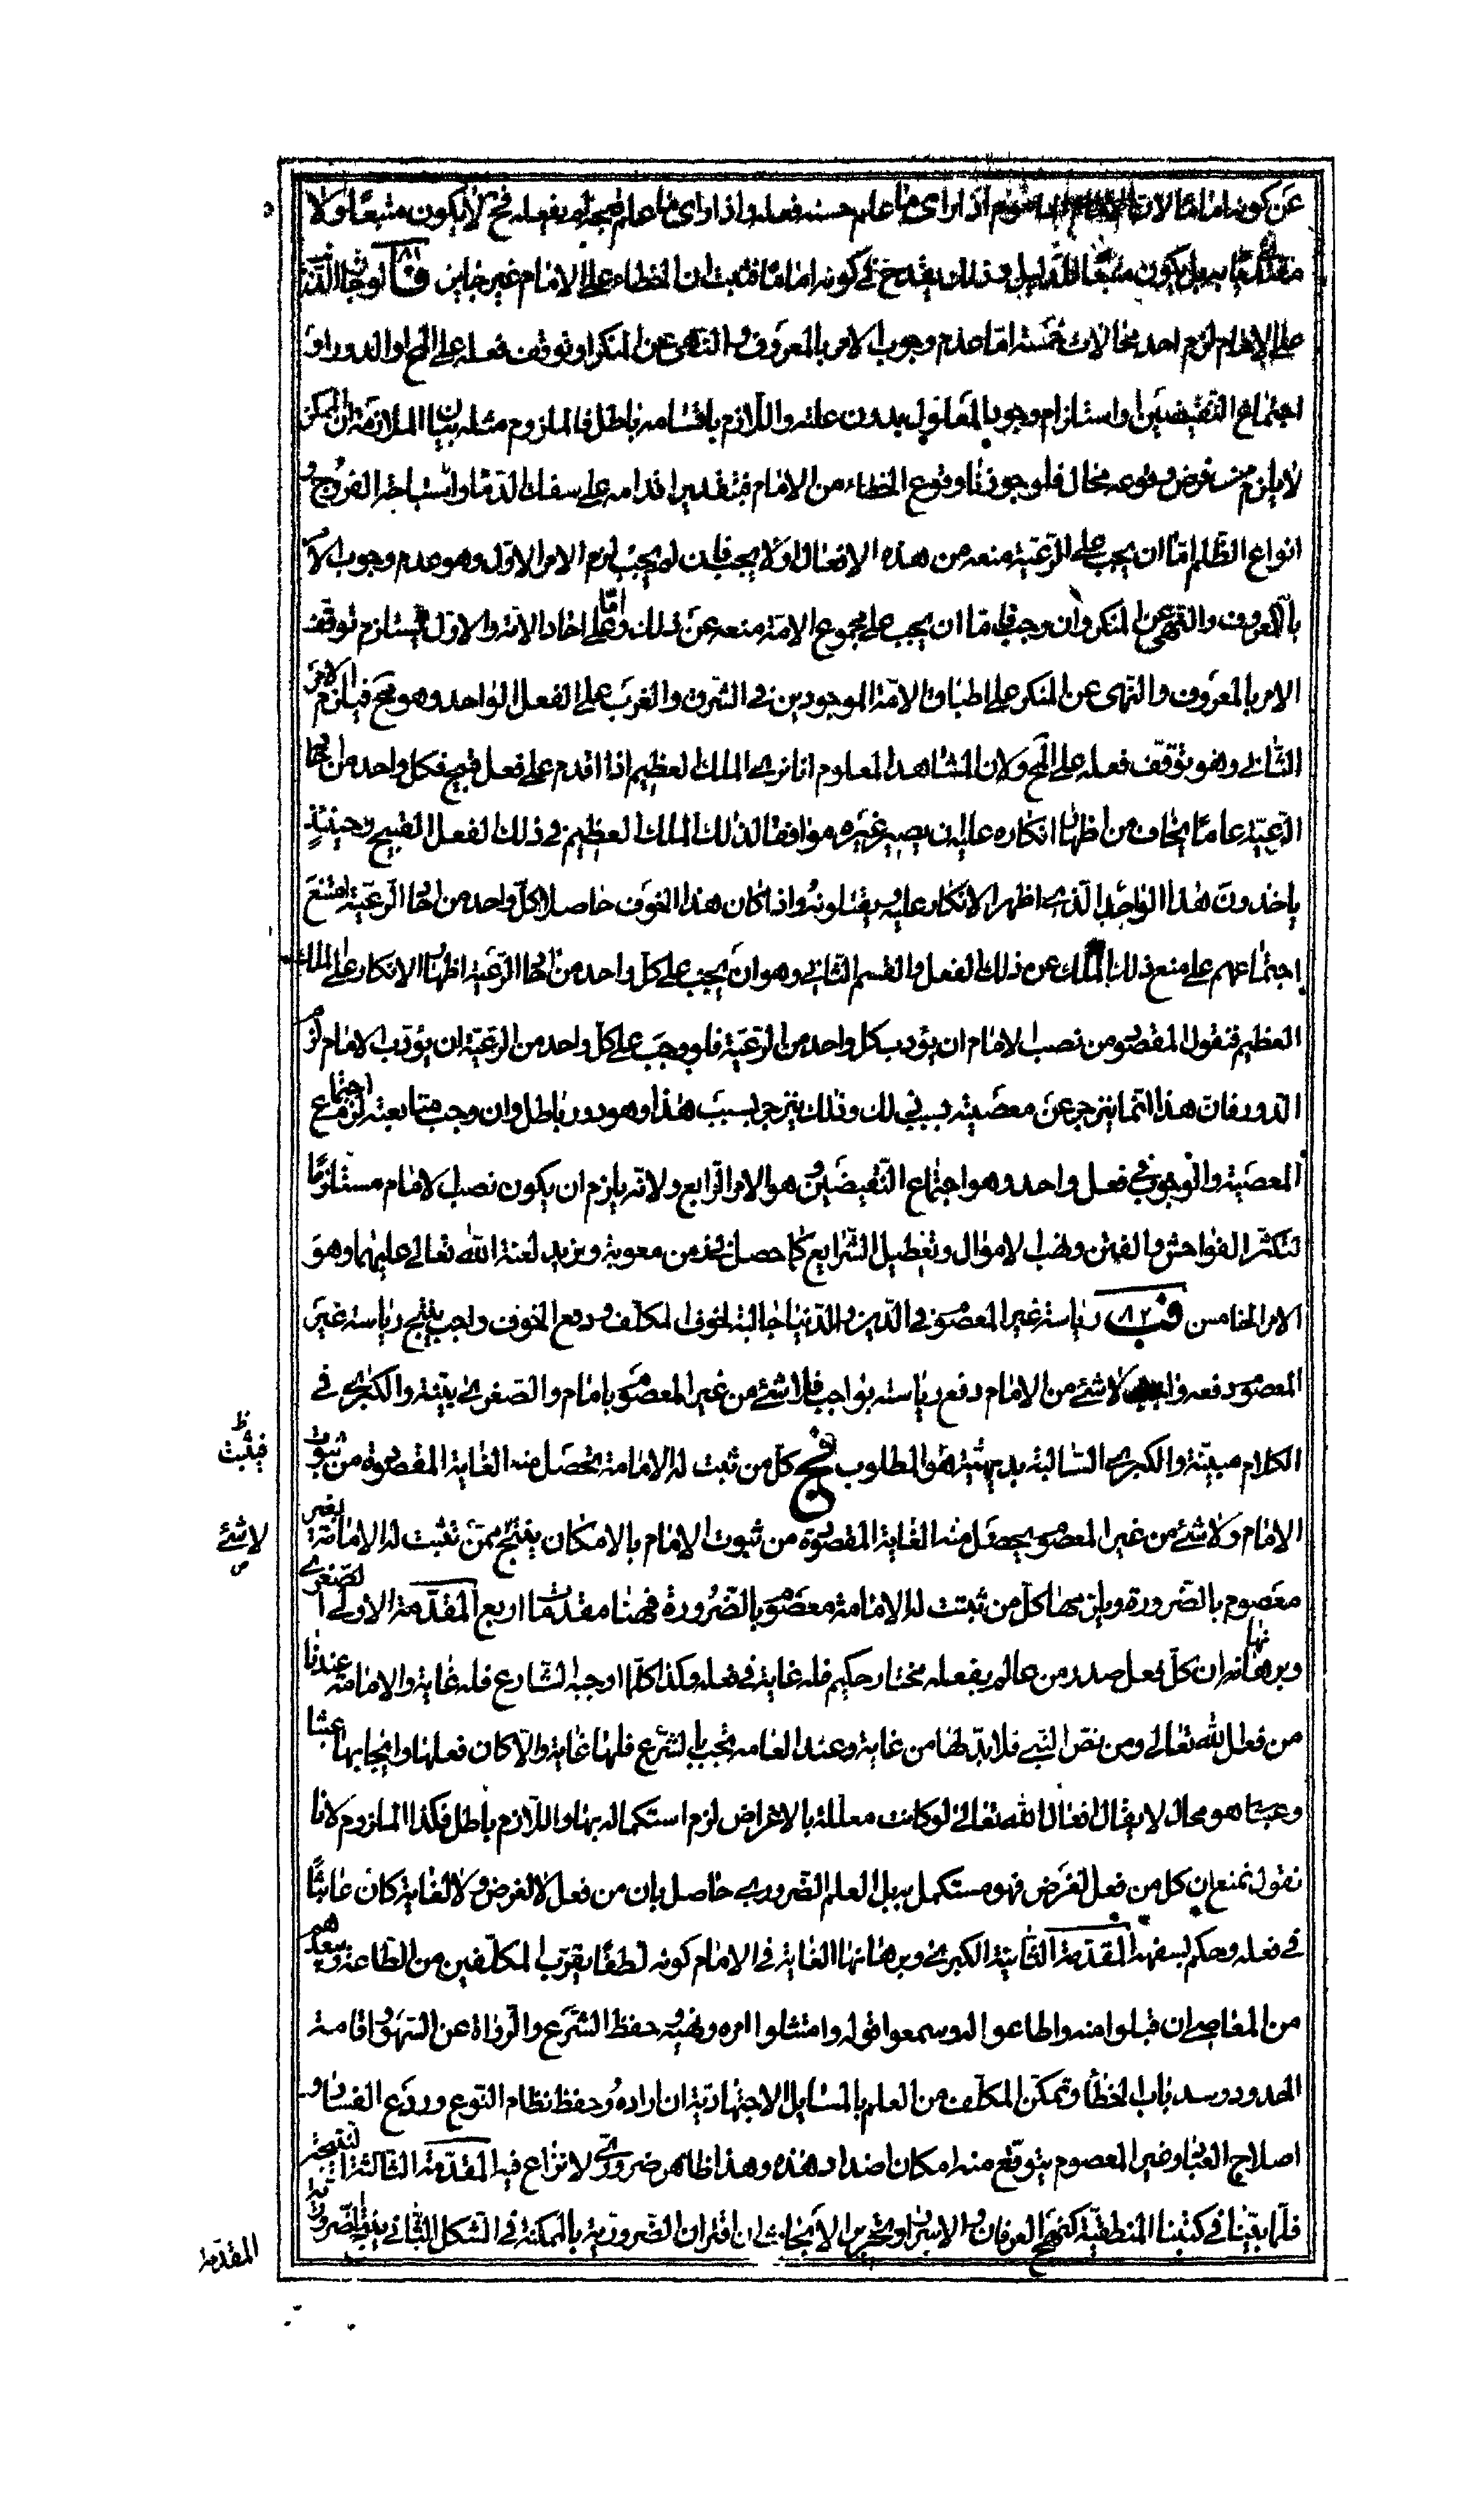 عن كونه اماما لانه اذا رأى ما علم حسنه فعله واذا رأى ما علم قبحه لم يفعله فح لا يكون متبعا ولا
به بل يكون متبعا للدليل وذلك يقدح في كونه اماما فثبت ان الخطاء على الامام غير جايز فا لو جاز الذنب
على الامام لزم احد محالات خمسة اما عدم وجوب الامر بالمعروف والنهى عن المنكر او توقف فعله على المح او الدور او
اجتماع النقيضين او استلزام وجوب المعلول بدون علته واللازم باقسامه باطل فالملزوم مثله بيان الملازمة ان الممكن
لا يلزم من فرض وقوعه محال فلو جوزنا وقوع الخطاء من الامام فبتقدير اقدامه على سفك الدماء واستباحة الفروج و
انواع الظلم اما ان يجب على الرعية منعه من هذه الافعال او لا يجب فان لم يجب لزم الامر الاول وهو عدم وجوب الامر
بالمعروف والنهى عن المنكر وان وجب فاما ان يجب على مجموع الامة منعه عن ذلك واما على احاد الامة والاول يستلزم توقف
الامر بالمعروف والنهى عن المنكر على اطباق الامة الموجودين في الشرق والغرب على الفعل الواحد وهو مح فيلزم الامر
الثاني وهو توقف فعله على المح ولان المشاهد المعلوم انا نرى الملك العظيم اذا اقدم على فعل قبيح فكل واحد من احاد
الرعية عاما يخاف من اظهار انكاره عليه ان يصير غيره موافقا لذلك الملك العظيم في ذلك الفعل القبيح وحينئذ
ياخذون هذا الواحد الذي اظهر الانكار عليه ويقتلونه واذا كان هذا الخوف حاصلا لكل واحد من احاد الرعية امتنع
اجتماعهم على منع ذلك الملك عن ذلك الفعل والقسم الثاني وهو ان يجب على كل واحد من احاد الرعية اظهار الانكار على الملك
العظيم فنقول المقصود من نصب الامام ان يؤدب كل واحد من الرعية فلو وجب على كل واحد من الرعية ان يؤدب الامام لزم
الدور فان هذا انما ينزجر عن معصيته بسبب ذلك وذلك ينزجر بسبب هذا وهو دور باطل وان وجب متابعته لزم اجتماع
المعصية والوجوب في فعل واحد وهو اجتماع النقيضين وهو الامر الرابع ولانه يلزم ان يكون نصب الامام مستلزما
لتكثر الفواحش والفتن ونهب الاموال وتعطيل الشرايع كما حصل في زمن معوية ويزيد لعنة الله تعالى عليهما وهو
الامر الخامس فب ٨٢ رياسة غير المعصوم في الدين والدنيا جالبة لخوف المكلف ودفع الخوف واجب ينتج رياسة غير
المعصوم دفعه واجب لا شئ من الامام دفع رياسته بواجب فلا شئ من غير المعصوم بامام والصغرى بينة والكبرى في
الكلام مبينة والكبرى السالبة بديهية هو المطلوب فج كل من ثبت له الامامة تحصل منه الغاية المقصودة من ثبوت
الامام ولا شئ من غير المعصوم يحصل منه الغاية المقصودة من ثبوت الامام بالامكان ينتج ممن تثبت له الامامة بغير
معصوم بالضرورة ويلزمها كل من ثبتت له الامامة معصوم بالضرورة فههنا مقدمات اربع المقدمة الاولى الصغرى
وبرهانها انه ان كل فعل صدر من عالم يفعله مختار حكيم فله غاية في فعله وكذا كلما اوجبه الشارع فله غاية والامامة عندنا
من فعل الله تعالى ومن نص النبي فلا بد لها من غاية وعند العامة تجب بالشرع فلها غاية والا كان فعلها وايجابها عبثا
وعبثا هو محال لا يقال افعال الله تعالى لو كانت معللة بالاغراض لزم استكماله بها واللازم باطل فكذا الملزوم لانا
نقول نمنع ان كل من فعل لغرض فهو مستكمل به بل العلم الضروري حاصل بان من فعل لا لغرض ولا لغاية كان عابثا
في فعله وحكم بسفهه المقدمة الثانية الكبرى وبرهانها الغاية في الامام كونه لطفا يقرب المكلفين من الطاعة ويبعدهم
من المعاصي ان قبلوا منه واطاعوا له وسمعوا قوله وامتثلوا امره ونهيه وحفظ الشرع والرواة عن السهو واقامة
الحدود وسد باب الخطأ وتمكن المكلف من العلم بالمسايل الاجتهادية ان اراده وحفظ نظام النوع وردع الفساد و
اصلاح العباد وغير المعصوم يتوقع منه امكان اضداد هذه وهذا ظاهر ضروري لا نزاع فيه المقدمة الثالثة النتيجة
فلما بينا في كتبنا المنطقية كنهج العرفان والاسرار وتحرير الابحاث ان اقتران الضرورية بالممكنة في الشكل الثاني ينتج ضرورية
فيثبت ظ
لا شئ ص
المقدمة